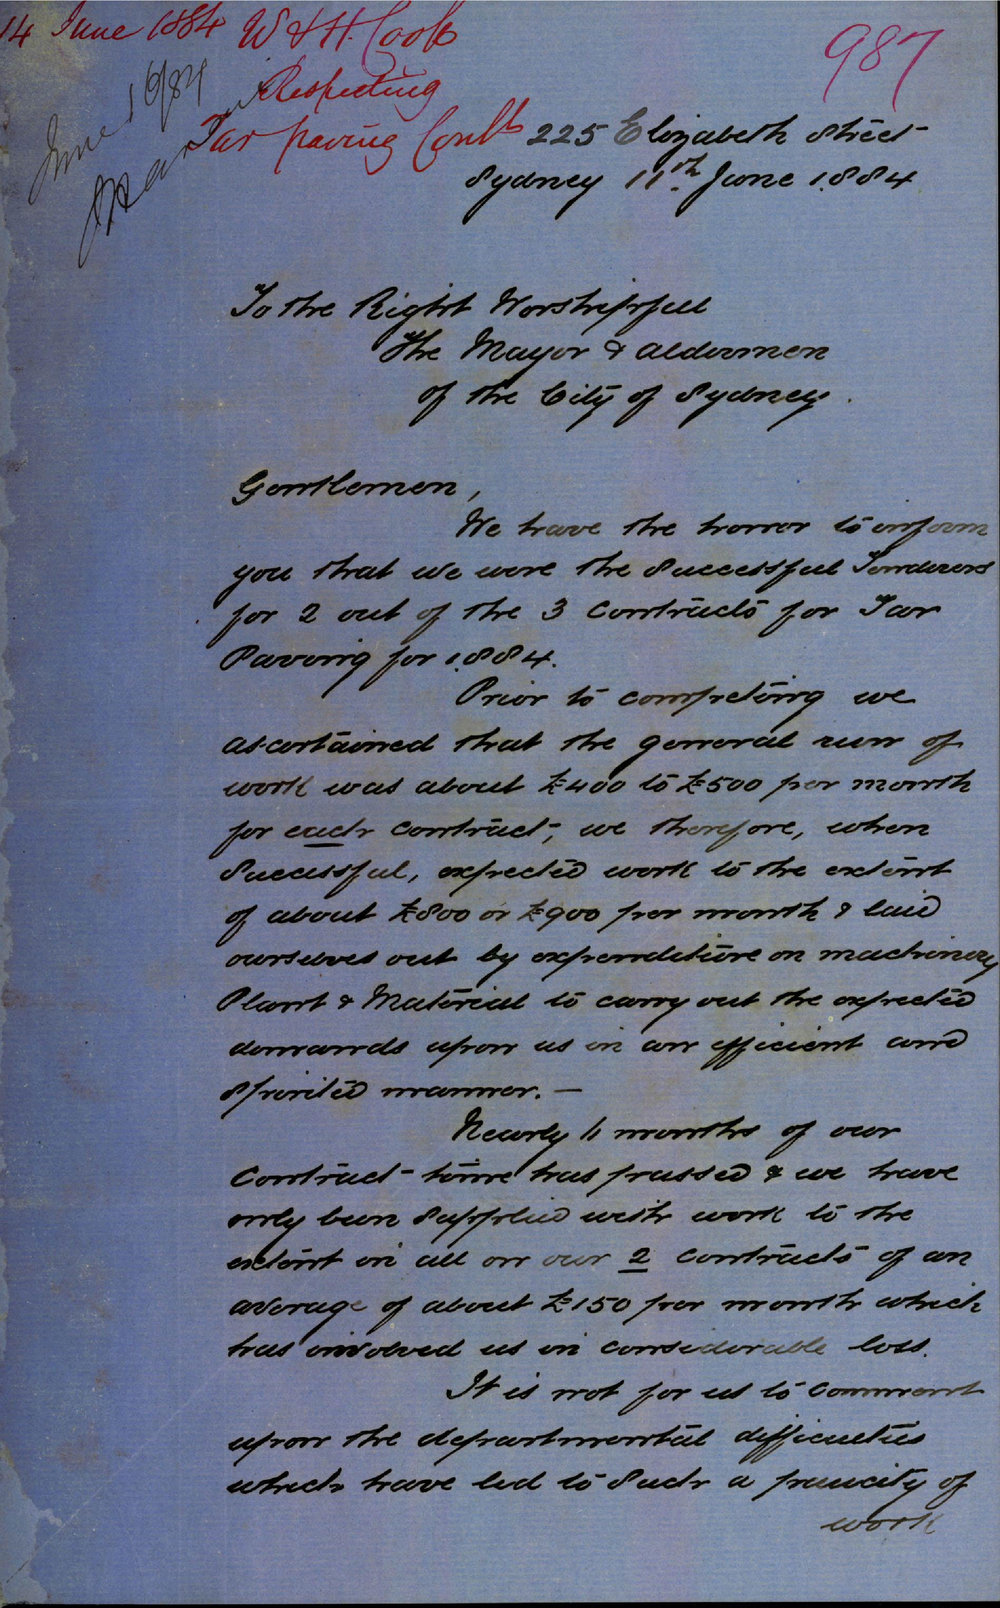 14 June 1884 W & H. Cook
Respecting
Tar paving Conts
987
June 16/84
225 Elizabeth Street
Sydney 11th June 1884
To the Right Worshipful
The Mayor & Aldermen
of the City of Sydney.
Gentlemen,
We have the honor to inform
you that we were the Successful Tenderers
for 2 out of the 3 Contracts for Tar
Paving for 1884.
Prior to competing we
ascertained that the general run of
work was about £400 to £500 per month
for each contract, we therefore, when
Successful, expected work to the extent
of about £800 or £900 per month & laid
ourselves out by expenditure on machinery
Plant & Material to carry out the expected
demands upon us in an efficient and
Spirited manner. —
Nearly 6 months of our
Contract time has passed & we have
only been Supplied with work to the
extent in all on our 2 contracts of an
average of about £150 per month which
has involved us in considerable loss.
It is not for us to comment
upon the departmental difficulties
which have led to Such a paucity of
work